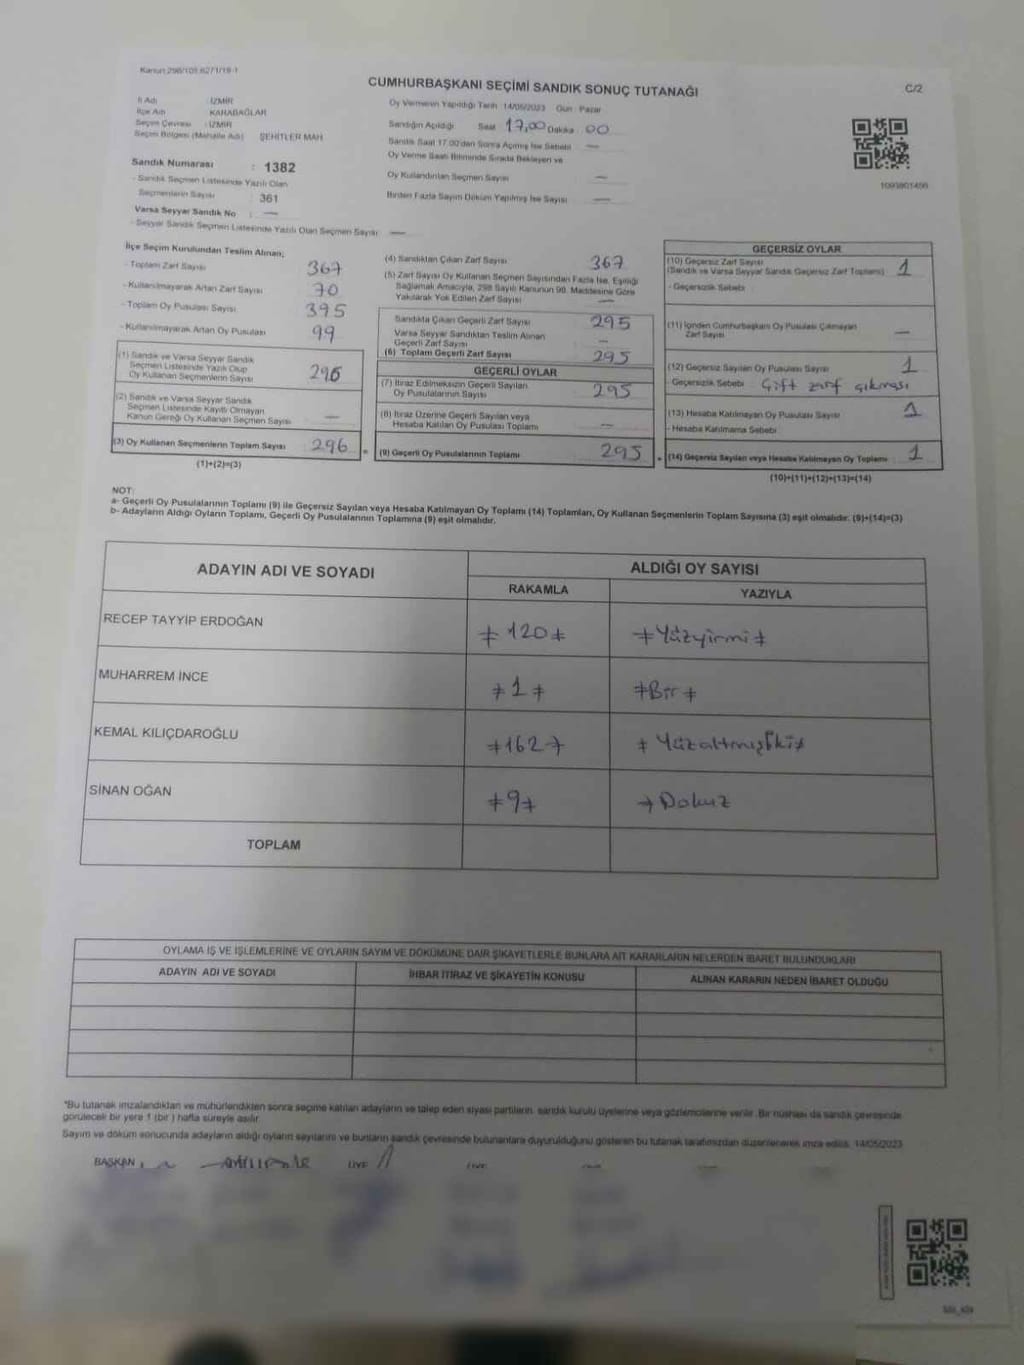 Kanun:298/105,6271/19-1
CUMHURBAŞKANI SEÇİMİ SANDIK SONUÇ TUTANAĞI
C/2
İl Adı : İZMİR
İlçe Adı : KARABAĞLAR
Seçim Çevresi : İZMİR
Seçim Bölgesi (Mahalle Adı) : ŞEHİTLER MAH.
Oy Vermenin Yapıldığı Tarih 14/05/2023 Gün: Pazar
Sandığın Açıldığı Saat 17,00 Dakika 00
Sandık Saat 17.00'den Sonra Açılmış İse Sebebi —
Oy Verme Saati Bitiminde Sırada Bekleyen ve
Oy Kullandırılan Seçmen Sayısı —
Birden Fazla Sayım Döküm Yapılmış İse Sayısı —
Sandık Numarası : 1382
- Sandık Seçmen Listesinde Yazılı Olan
Seçmenlerin Sayısı : 361
Varsa Seyyar Sandık No : —
- Seyyar Sandık Seçmen Listesinde Yazılı Olan Seçmen Sayısı —
İlçe Seçim Kurulundan Teslim Alınan;
- Toplam Zarf Sayısı 367
- Kullanılmayarak Artan Zarf Sayısı 70
- Toplam Oy Pusulası Sayısı 395
- Kullanılmayarak Artan Oy Pusulası 99
(1) Sandık ve Varsa Seyyar Sandık
Seçmen Listesinde Yazılı Olup
Oy Kullanan Seçmenlerin Sayısı 296
(2) Sandık ve Varsa Seyyar Sandık
Seçmen Listesinde Kayıtlı Olmayan
Kanun Gereği Oy Kullanan Seçmen Sayısı —
(3) Oy Kullanan Seçmenlerin Toplam Sayısı 296
(1)+(2)=(3)
(4) Sandıktan Çıkan Zarf Sayısı 367
(5) Zarf Sayısı Oy Kullanan Seçmen Sayısından Fazla İse, Eşitliği
Sağlamak Amacıyla, 298 Sayılı Kanunun 98. Maddesine Göre
Yakılarak Yok Edilen Zarf Sayısı —
Sandıkta Çıkan Geçerli Zarf Sayısı 295
Varsa Seyyar Sandıktan Teslim Alınan
Geçerli Zarf Sayısı —
(6) Toplam Geçerli Zarf Sayısı 295
GEÇERLİ OYLAR
(7) İtiraz Edilmeksizin Geçerli Sayılan
Oy Pusulalarının Sayısı 295
(8) İtiraz Üzerine Geçerli Sayılan veya
Hesaba Katılan Oy Pusulası Toplamı —
= (9) Geçerli Oy Pusulalarının Toplamı 295
GEÇERSİZ OYLAR
(10) Geçersiz Zarf Sayısı
(Sandık ve Varsa Seyyar Sandık Geçersiz Zarf Toplamı) 1
- Geçersizlik Sebebi
(11) İçinden Cumhurbaşkanı Oy Pusulası Çıkmayan
Zarf Sayısı —
(12) Geçersiz Sayılan Oy Pusulası Sayısı 1
- Geçersizlik Sebebi : Çift zarf çıkması
(13) Hesaba Katılmayan Oy Pusulası Sayısı 1
- Hesaba Katılmama Sebebi
+ (14) Geçersiz Sayılan veya Hesaba Katılmayan Oy Toplamı 1
(10)+(11)+(12)+(13)=(14)
NOT:
a- Geçerli Oy Pusulalarının Toplamı (9) ile Geçersiz Sayılan veya Hesaba Katılmayan Oy Toplamı (14) Toplamları, Oy Kullanan Seçmenlerin Toplam Sayısına (3) eşit olmalıdır. (9)+(14)=(3)
b- Adayların Aldığı Oyların Toplamı, Geçerli Oy Pusulalarının Toplamına (9) eşit olmalıdır.
ADAYIN ADI VE SOYADI
ALDIĞI OY SAYISI
RAKAMLA YAZIYLA
RECEP TAYYİP ERDOĞAN ≠120≠ ≠Yüzyirmi≠
MUHARREM İNCE ≠1≠ ≠Bir≠
KEMAL KILIÇDAROĞLU ≠162≠ ≠Yüzaltmışİki≠
SİNAN OĞAN ≠9≠ ≠Dokuz
TOPLAM
OYLAMA İŞ VE İŞLEMLERİNE VE OYLARIN SAYIM VE DÖKÜMÜNE DAİR ŞİKAYETLERLE BUNLARA AİT KARARLARIN NELERDEN İBARET BULUNDUKLARI
ADAYIN ADI VE SOYADI İHBAR İTİRAZ VE ŞİKAYETİN KONUSU ALINAN KARARIN NEDEN İBARET OLDUĞU
*Bu tutanak imzalandıktan ve mühürlendikten sonra seçime katılan adayların ve talep eden siyasi partilerin, sandık kurulu üyelerine veya gözlemcilerine verilir. Bir nüshası da sandık çevresinde
görülecek bir yere 1 (bir) hafta süreyle asılır.
Sayım ve döküm sonucunda adayların aldığı oyların sayılarını ve bunların sandık çevresinde bulunanlara duyurulduğunu gösteren bu tutanak tarafımızdan düzenlenerek imza edildi. 14/05/2023
BAŞKAN